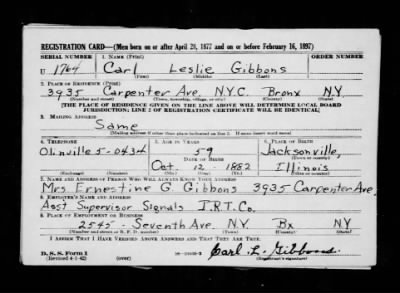 REGISTRATION CARD—(Men born on or after April 28, 1877 and on or before February 16, 1897)
SERIAL NUMBER 1. NAME (Print) ORDER NUMBER
U 1764 Carl Leslie Gibbons
(First) (Middle) (Last)
2. PLACE OF RESIDENCE (Print)
3935 Carpenter Ave. N.Y.C. Bronx N.Y.
(Number and street) (Town, township, village, or city) (County) (State)
[THE PLACE OF RESIDENCE GIVEN ON THE LINE ABOVE WILL DETERMINE LOCAL BOARD
JURISDICTION; LINE 2 OF REGISTRATION CERTIFICATE WILL BE IDENTICAL]
3. MAILING ADDRESS
Same
(Mailing address if other than place indicated on line 2. If same insert word same)
4. TELEPHONE 5. AGE IN YEARS 6. PLACE OF BIRTH
Olinville 5-0434 59 Jacksonville,
DATE OF BIRTH (Town or county)
Oct. 12 1882 Illinois
(Mo.) (Day) (Yr.) (State or country)
7. NAME AND ADDRESS OF PERSON WHO WILL ALWAYS KNOW YOUR ADDRESS
Mrs Ernestine G Gibbons 3935 Carpenter Ave,
8. EMPLOYER'S NAME AND ADDRESS
Asst Supervisor Signals I.R.T. Co.
9. PLACE OF EMPLOYMENT OR BUSINESS
2545 - Seventh Ave. N.Y. Bx NY
(Number and street or R. F. D. number) (Town) (County) (State)
I AFFIRM THAT I HAVE VERIFIED ABOVE ANSWERS AND THAT THEY ARE TRUE.
D. S. S. Form 1
(Revised 4-1-42) Carl L. Gibbons
(Registrant's signature)